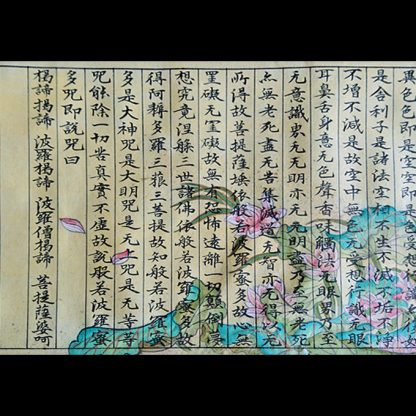 異色色即是空空即是色
是舍利子是諸法空相不生不滅不垢不淨
不增不減是故空中无色无受想行識无眼
耳鼻舌身意无色聲香味觸法无眼界乃至
无意識界无无明亦无无明盡乃至無老死
亦無老死盡无苦集滅道无智亦无得以无
所得故菩提薩埵依般若波羅蜜多故心無
罣礙无罣礙故无有恐怖遠離一切顛倒夢
想究竟涅槃三世諸佛依般若波羅蜜多故
得阿耨多羅三藐三菩提故知般若波羅蜜
多是大神咒是大明咒是无上咒是无等等
咒能除一切苦真實不虛故說般若波羅蜜
多咒即說咒曰
揭諦揭諦 波羅揭諦 波羅僧揭諦 菩提薩婆呵